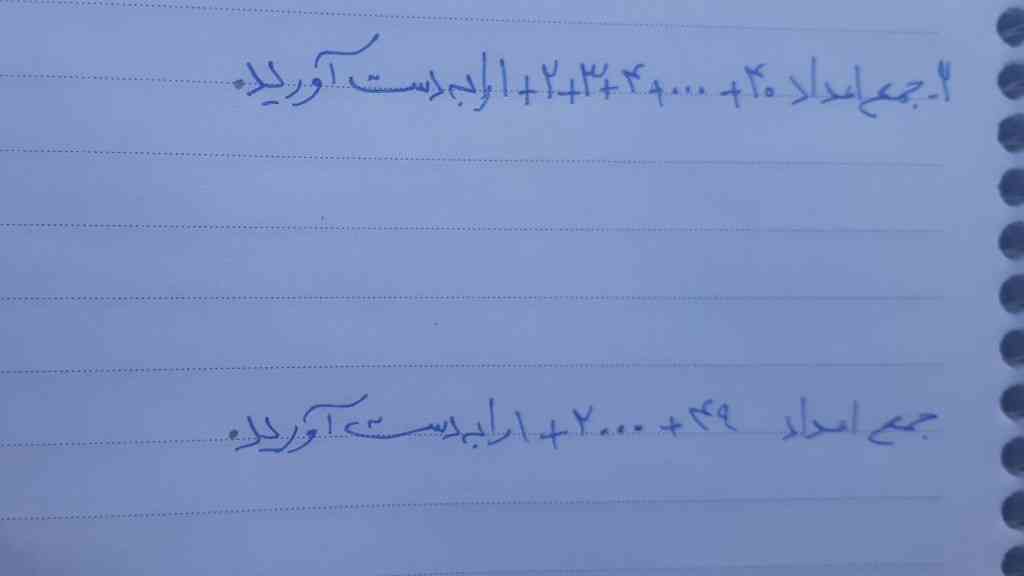 ۲- جمع اعداد ۱+۲+۳+۴+...+۴۰ را به دست آورید.
جمع اعداد ۱+۲...+۴۹ را به دست آورید.